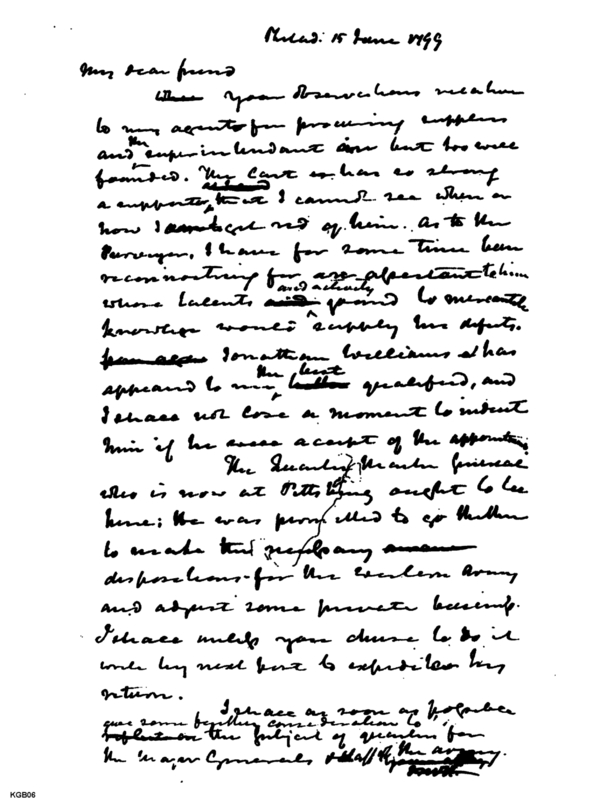 Philad. 15 June 1799
My dear friend
Your observations relative
to my agents for procuring supplies
and the superintendant are but too well
founded. The last has so strong
a supporter, that I cannot see when or
how I get rid of him. As to the
Purveyor, I have for some time been
reconnoitring for an assistant to him
whose talents and activity joined to mercantile
knowledge would supply his defects.
Jonathan Williams has
appeared to me the best qualified, and
I shall not lose a moment to indent
him if he will accept of the appointment.
The Quarter Master General
who is now at Pittsburg ought to be
here; he was permitted to go thither
to make the necessary
dispositions for the western army
and adjust some private business.
I shall unless you chuse to do it
write by next post to expedite his
return.
I shall as soon as possible
give some further consideration to
the subject of quarters for
the Major Generals & staff of the army.